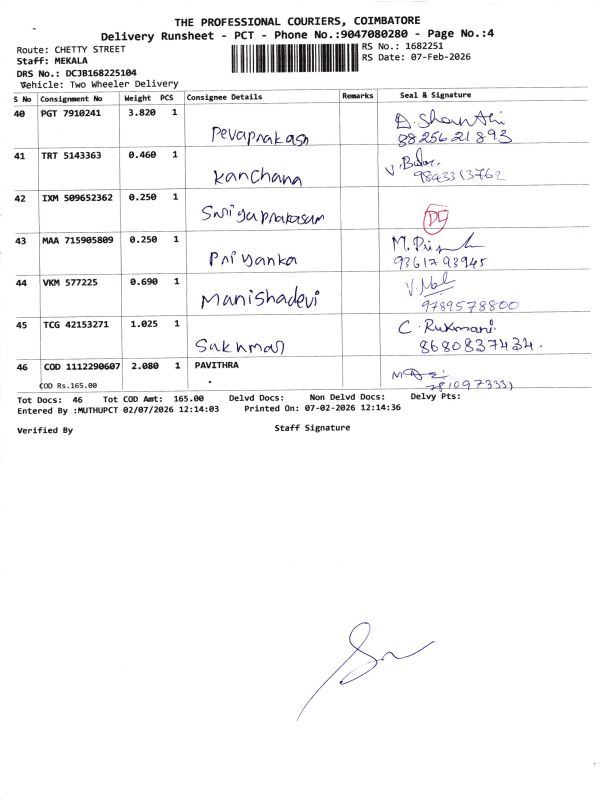 THE PROFESSIONAL COURIERS, COIMBATORE
Delivery Runsheet - PCT - Phone No.:9047080280 - Page No.:4
Route: CHETTY STREET RS No.: 1682251
Staff: MEKALA RS Date: 07-Feb-2026
DRS No.: DCJB168225104
Vehicle: Two Wheeler Delivery
S No Consignment No Weight PCS Consignee Details Remarks Seal & Signature
40 PGT 7910241 3.820 1 Devaprakash D. Shanthi
8825621893
41 TRT 5143363 0.460 1 Kanchana
9843313762
42 IXM 509652362 0.250 1
43 MAA 715905809 0.250 1 Priyanka
9361793945
44 VKM 577225 0.690 1 Manishadevi
9789578800
45 TCG 42153271 1.025 1 Sukhman C. Rukmani
8680837434.
46 COD 1112290607 2.080 1 PAVITHRA
COD Rs.165.00
Tot Docs: 46 Tot COD Amt: 165.00 Delvd Docs: Non Delvd Docs: Delvy Pts:
Entered By :MUTHUPCT 02/07/2026 12:14:03 Printed On: 07-02-2026 12:14:36
Verified By Staff Signature